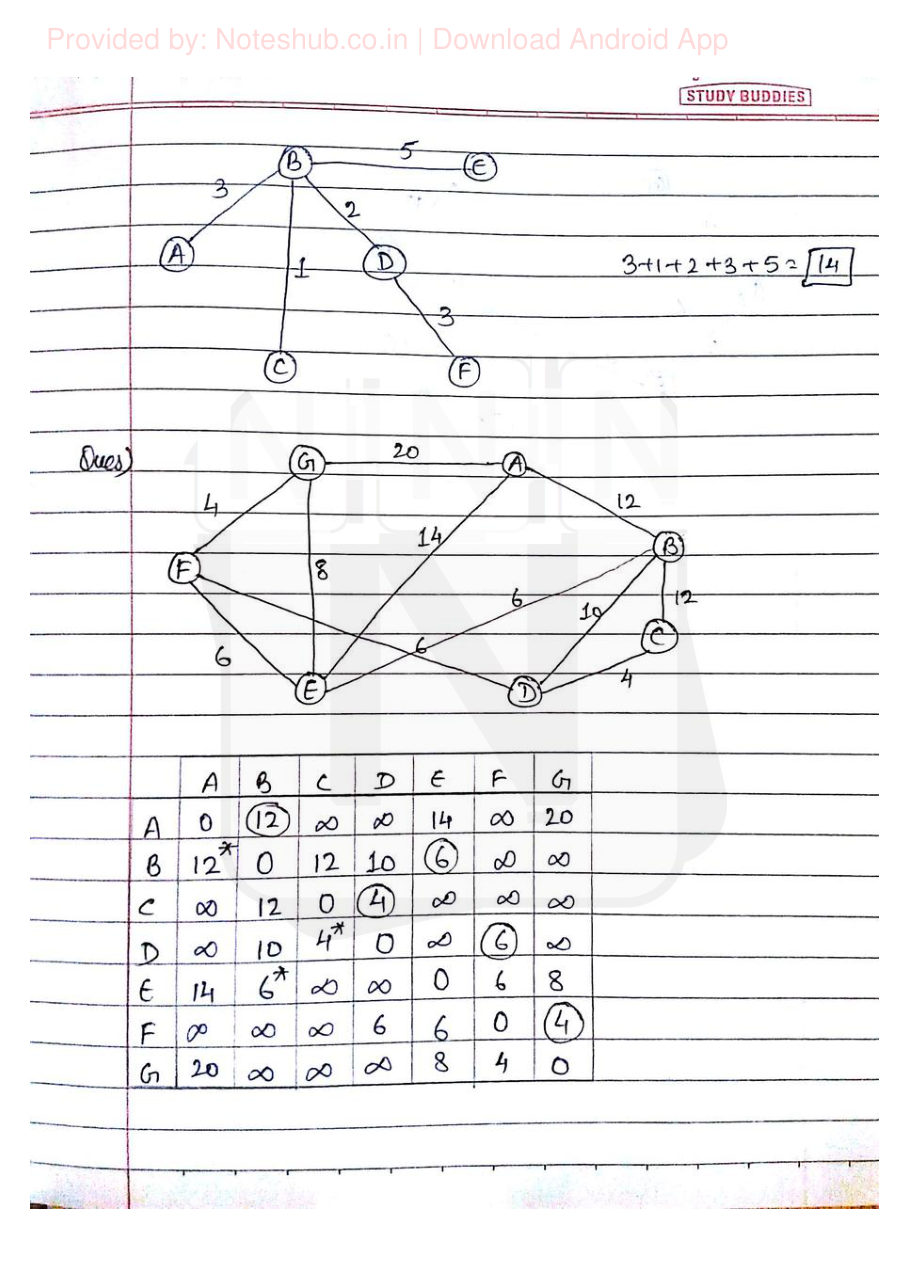 Provided by: Noteshub.co.in | Download Android App
STUDY BUDDIES
B 5 E
3 2
A 1 D
3+1+2+3+5= 14
3
C F
Ques)
G 20 A
4 14 12
F 8 B
6 10 12
6 6 C
E D 4
A B C D E F G
A 0 12 ∞ ∞ 14 ∞ 20
B 12* 0 12 10 6 ∞ ∞
C ∞ 12 0 4 ∞ ∞ ∞
D ∞ 10 4* 0 ∞ 6 ∞
E 14 6* ∞ ∞ 0 6 8
F ∞ ∞ ∞ 6 6 0 4
G 20 ∞ ∞ ∞ 8 4 0